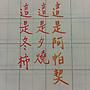 這是阿帕契
這是夕燒
這是冬柿